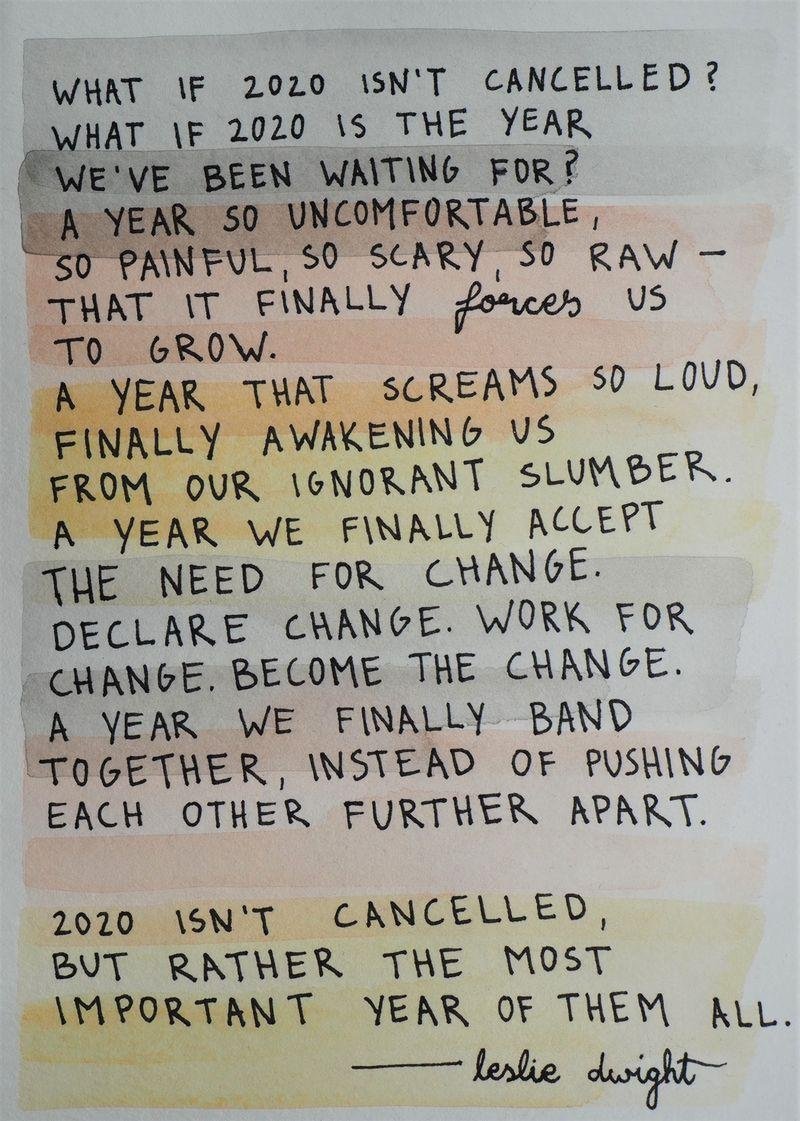 WHAT IF 2020 ISN'T CANCELLED?
WHAT IF 2020 IS THE YEAR
WE'VE BEEN WAITING FOR?
A YEAR SO UNCOMFORTABLE,
SO PAINFUL, SO SCARY, SO RAW —
THAT IT FINALLY forces US
TO GROW.
A YEAR THAT SCREAMS SO LOUD,
FINALLY AWAKENING US
FROM OUR IGNORANT SLUMBER.
A YEAR WE FINALLY ACCEPT
THE NEED FOR CHANGE.
DECLARE CHANGE. WORK FOR
CHANGE. BECOME THE CHANGE.
A YEAR WE FINALLY BAND
TOGETHER, INSTEAD OF PUSHING
EACH OTHER FURTHER APART.
2020 ISN'T CANCELLED,
BUT RATHER THE MOST
IMPORTANT YEAR OF THEM ALL.
— leslie dwight